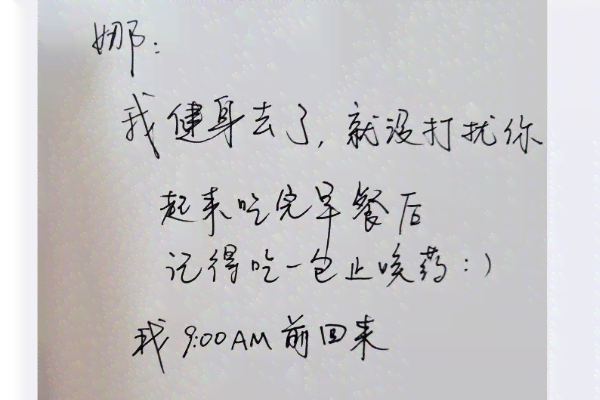 娜:
我健身去了, 就没打扰你
起来吃完早餐后
记得吃一包止咳药:)
我 9:00AM 前回来